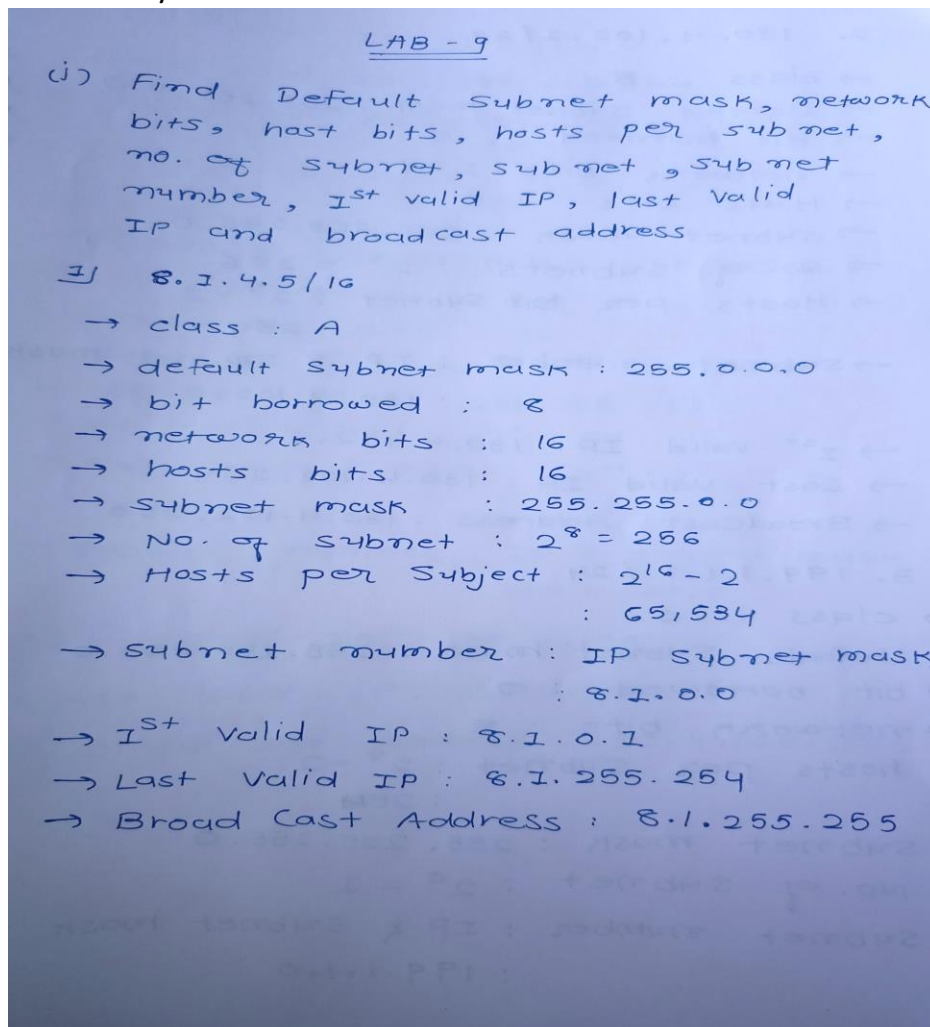 LAB - 9
(i) Find Default Subnet mask, network
bits, host bits, hosts per subnet,
no. of subnet, subnet, subnet
number, Ist valid IP, last valid
IP and broadcast address
1) 8.1.4.5/16
→ class : A
→ default subnet mask : 255.0.0.0
→ bit borrowed : 8
→ network bits : 16
→ hosts bits : 16
→ subnet mask : 255.255.0.0
→ No. of subnet : 2^8 = 256
→ Hosts per Subject : 2^16 - 2
: 65,534
→ subnet number : IP subnet mask
: 8.1.0.0
→ Ist Valid IP : 8.1.0.1
→ Last Valid IP : 8.1.255.254
→ Broad Cast Address : 8.1.255.255